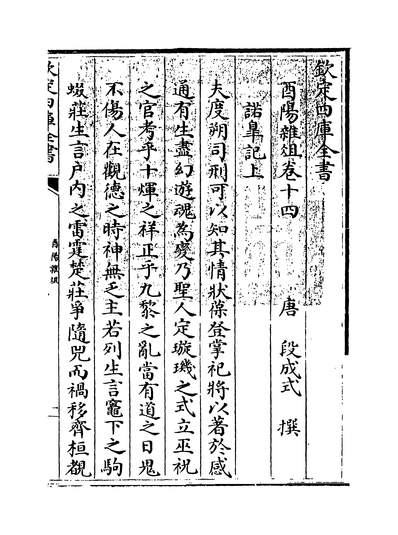 欽定四庫全書
酉陽雜俎卷十四
唐 段成式 撰
諾臯記上
夫度朔司刑可以知其情狀葆登掌祀將以著於感
通有生盡幻遊魂為變乃聖人定璇璣之式立巫祝
之官考乎十煇之祥正乎九黎之亂當有道之日鬼
不傷人在觀德之時神無乏主若列生言竈下之駒
掇莊生言户内之雷霆楚莊爭隨兕而禍移齊桓覩
欽定四庫全書
酉陽雜俎
一